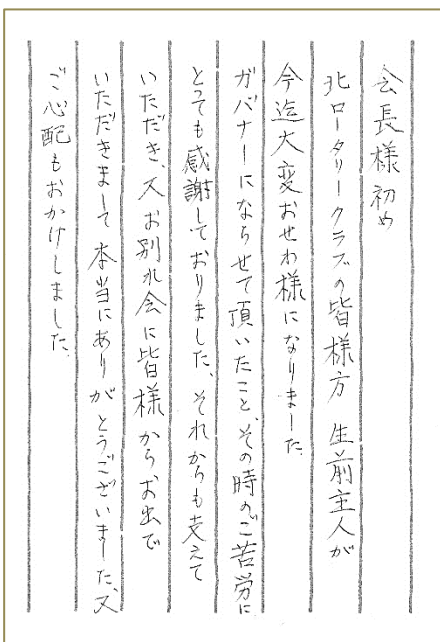 会長様初め
北ロータリークラブの皆様方 生前主人が
今迄大変おせわ様になりました
ガバナーにならせて頂いたこと、その時のご苦労に
とっても感謝しておりました、それからも支えて
いただき、又お別れ会に皆様からお出で
いただきまして本当にありがとうございました、又
ご心配もおかけしました、